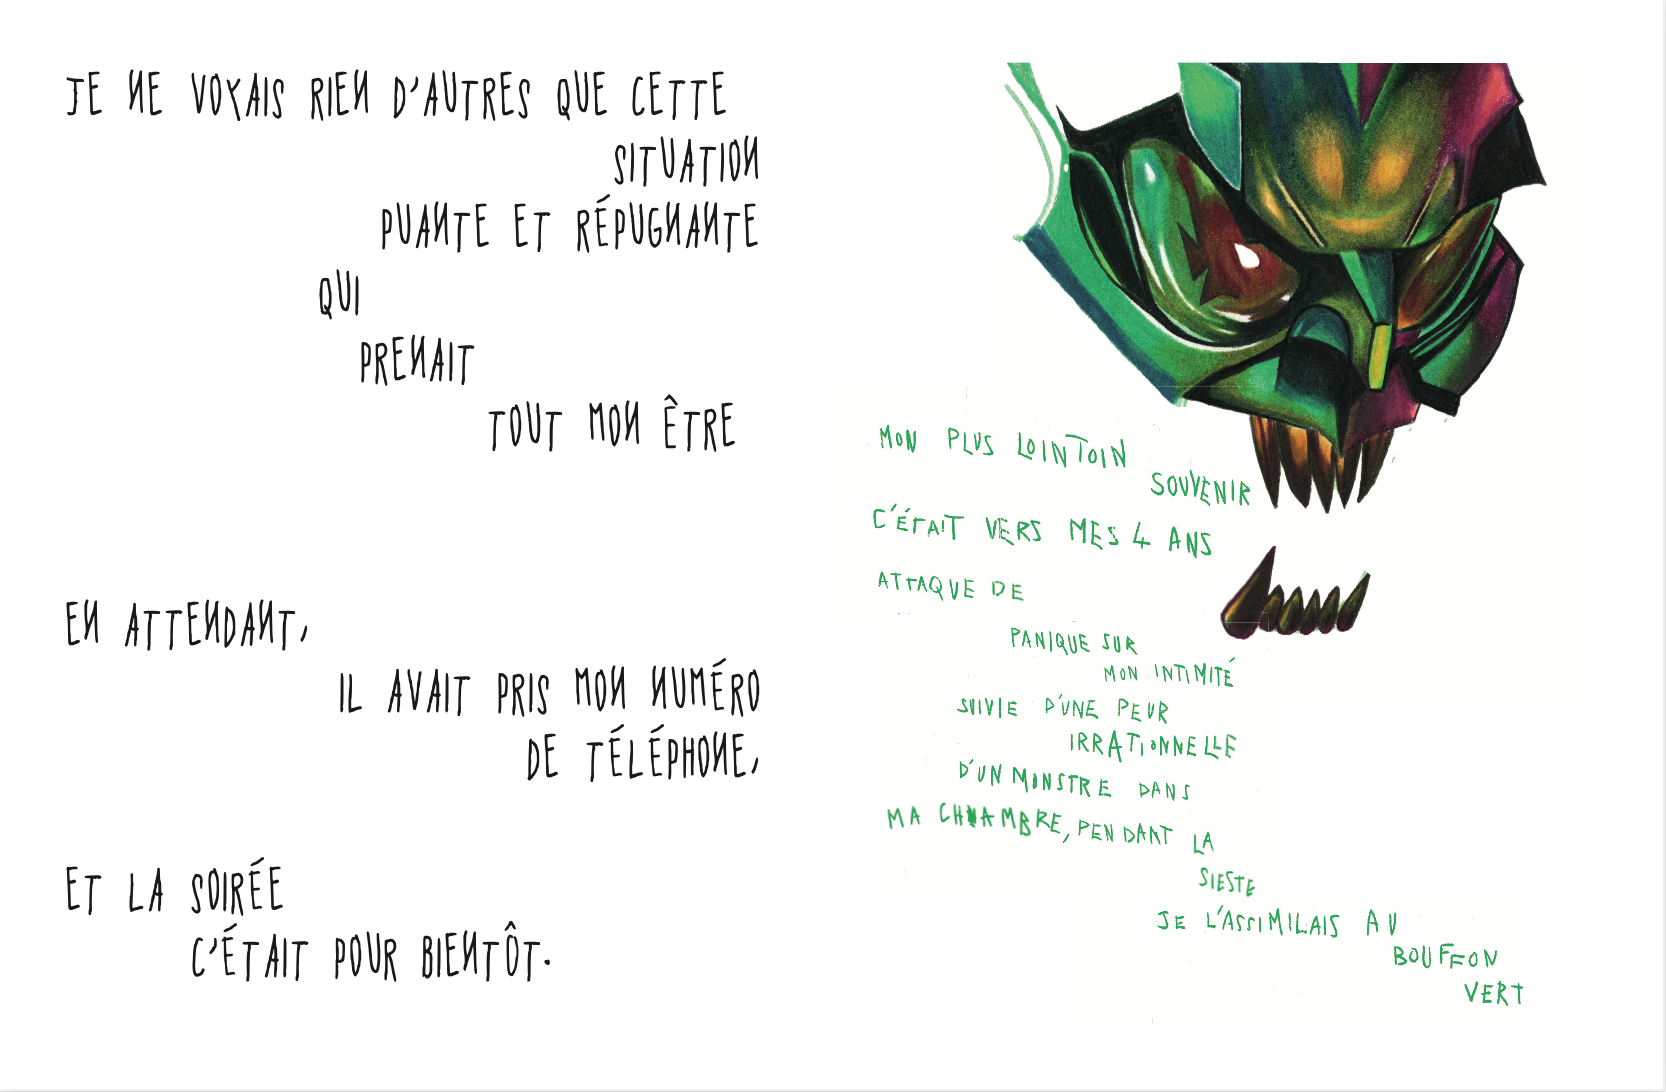 JE NE VOYAIS RIEN D'AUTRES QUE CETTE
SITUATION
PUANTE ET RÉPUGNANTE
QUI
PRENAIT
TOUT MON ÊTRE
EN ATTENDANT,
IL AVAIT PRIS MON NUMÉRO
DE TÉLÉPHONE,
ET LA SOIRÉE
C'ÉTAIT POUR BIENTÔT.
MON PLUS LOINTOIN
SOUVENIR
C'ÉTAIT VERS MES 4 ANS
ATTAQUE DE
PANIQUE SUR
MON INTIMITÉ
SUIVIE D'UNE PEUR
IRRATIONNELLE
D'UN MONSTRE DANS
MA CHAMBRE, PENDANT LA
SIESTE
JE L'ASSIMILAIS AU
BOUFFON
VERT